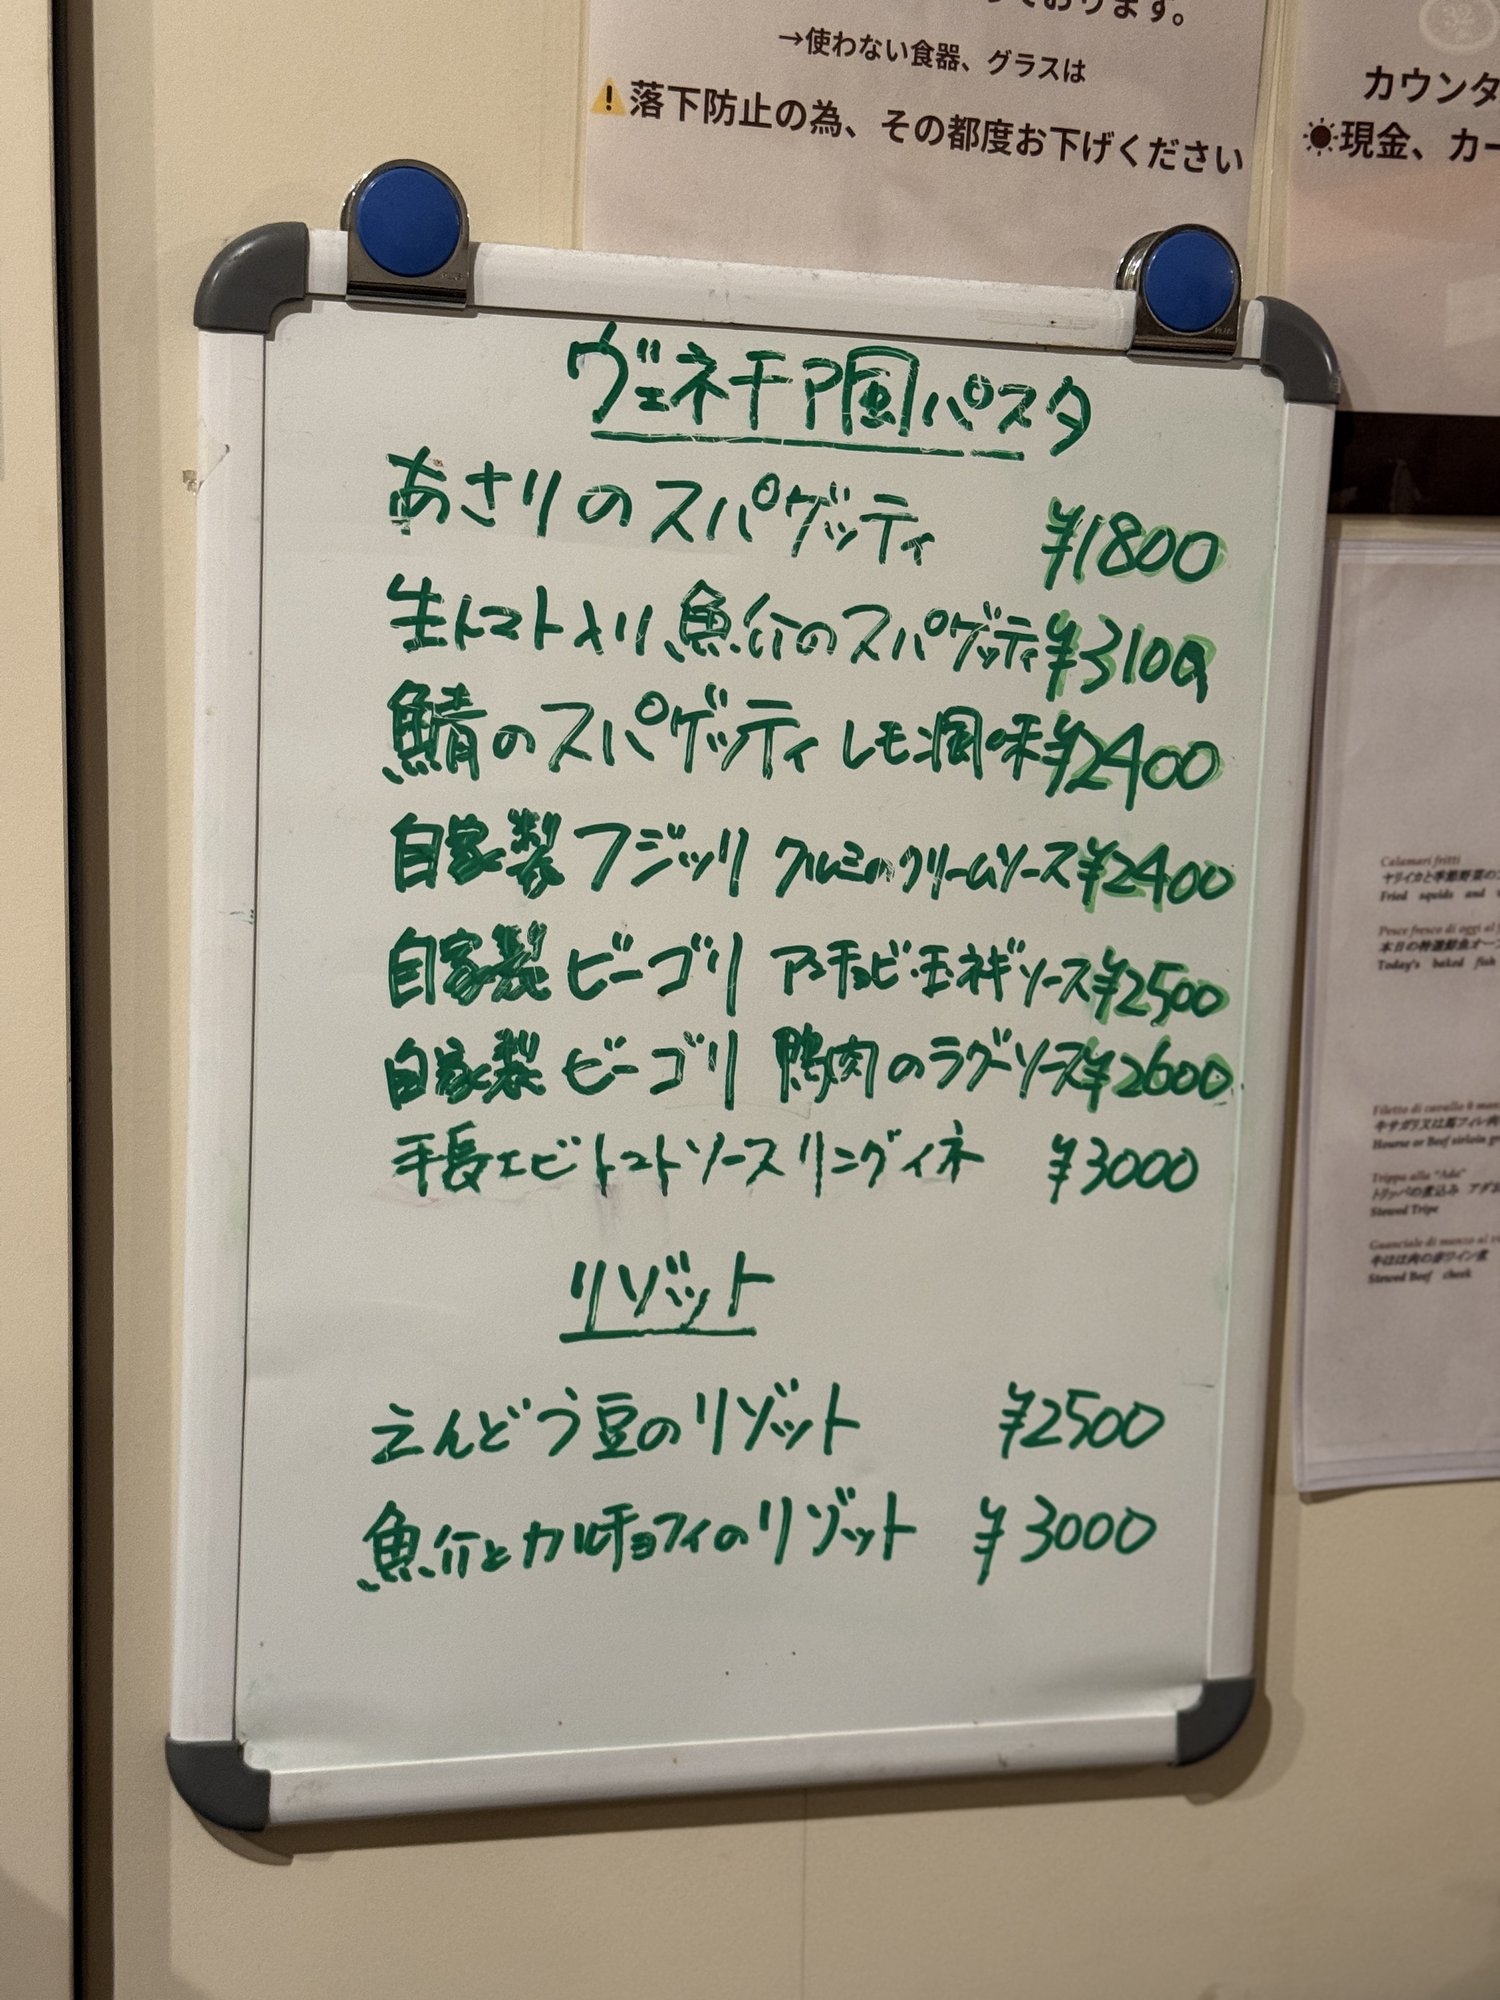 ております。
→使わない食器、グラスは
⚠落下防止の為、その都度お下げください
カウンタ
☀現金、カー
ヴェネチア風パスタ
あさりのスパゲッティ ¥1800
生トマト入り魚介のスパゲッティ ¥3100
鯖のスパゲッティ レモン風味 ¥2400
自家製 フジッリ クルミのクリームソース ¥2400
自家製 ビーゴリ アンチョビ・玉ネギソース ¥2500
自家製 ビーゴリ 鴨肉のラグーソース ¥2600
手長エビトマトソースリングイネ ¥3000
リゾット
えんどう豆のリゾット ¥2500
魚介とカルチョフィのリゾット ¥3000
Calamari fritti
ヤリイカと季節野菜の
Fried squids and
Pesce fresco di oggi al
本日の特選鮮魚オー
Today's baked fish
Filetto di cavallo o man
牛サガリ又は馬フィレ肉
Hourse or Beef sirloin gr
Trippa alla "Ada"
トリッパの煮込み アダ
Stewed Tripe
Guanciale di manzo al
牛ほほ肉の赤ワイン煮
Stewed Beef cheek